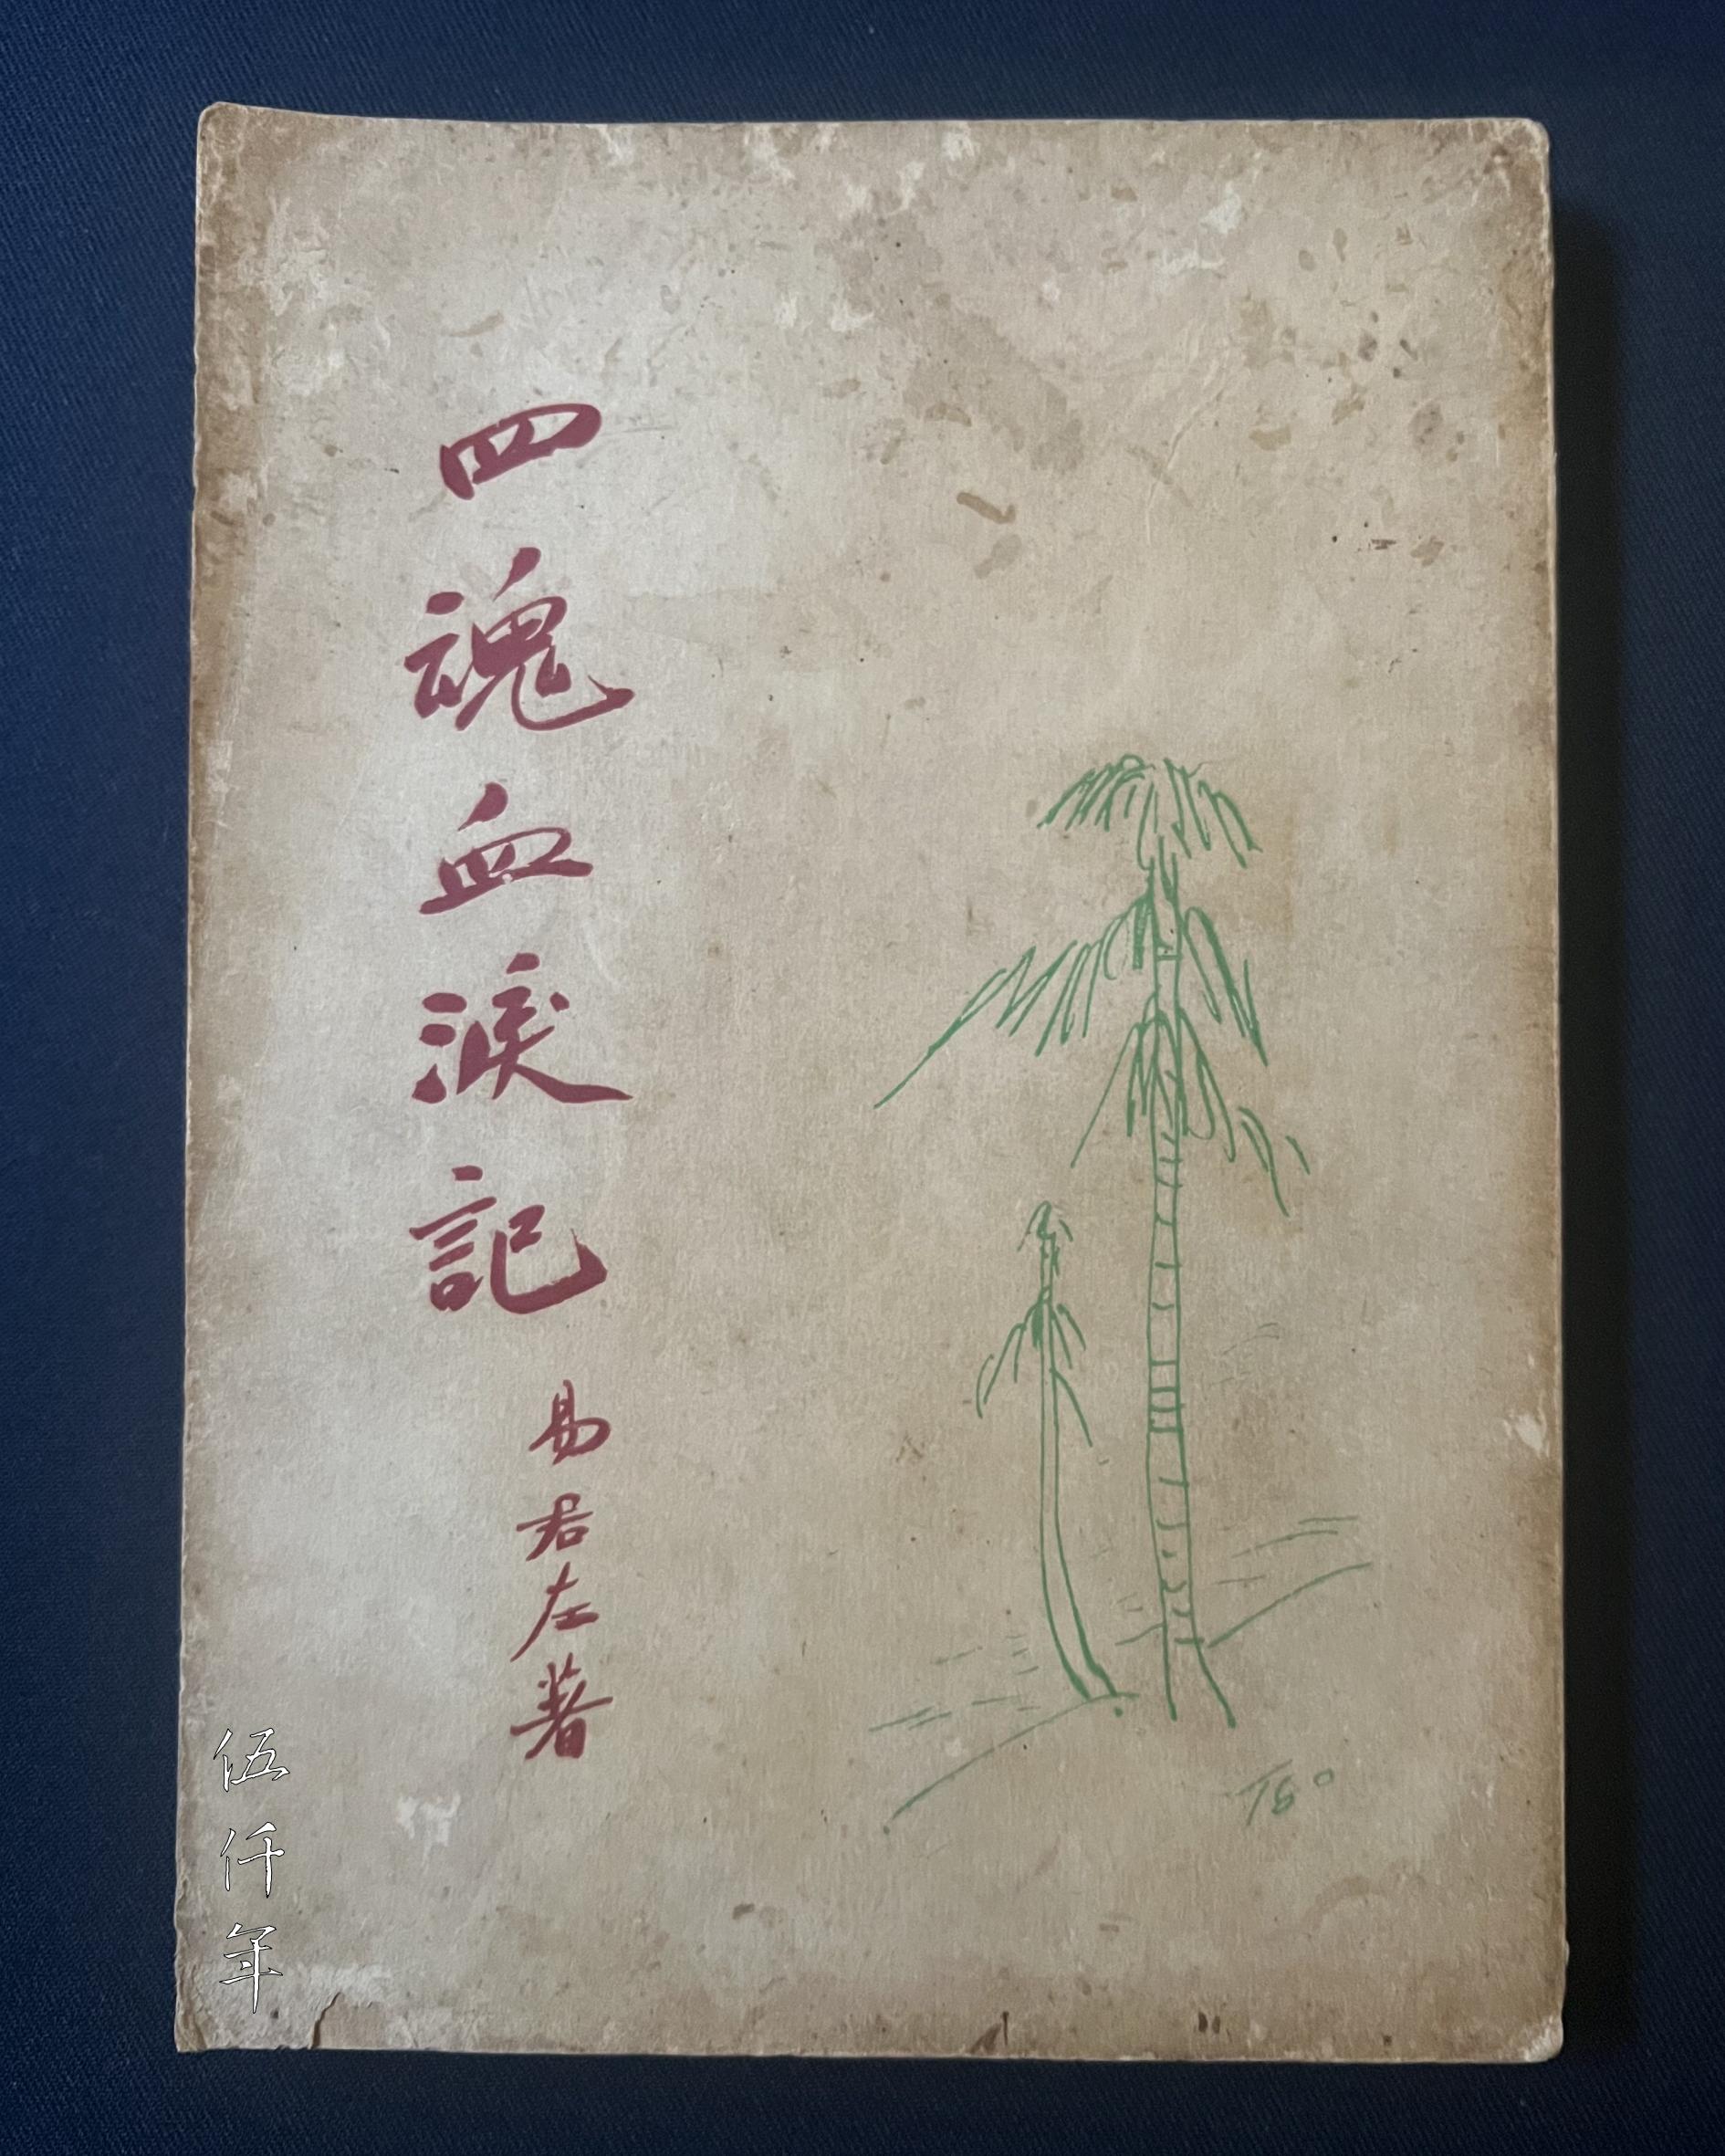 四魂血淚記
易君左著
伍仟年